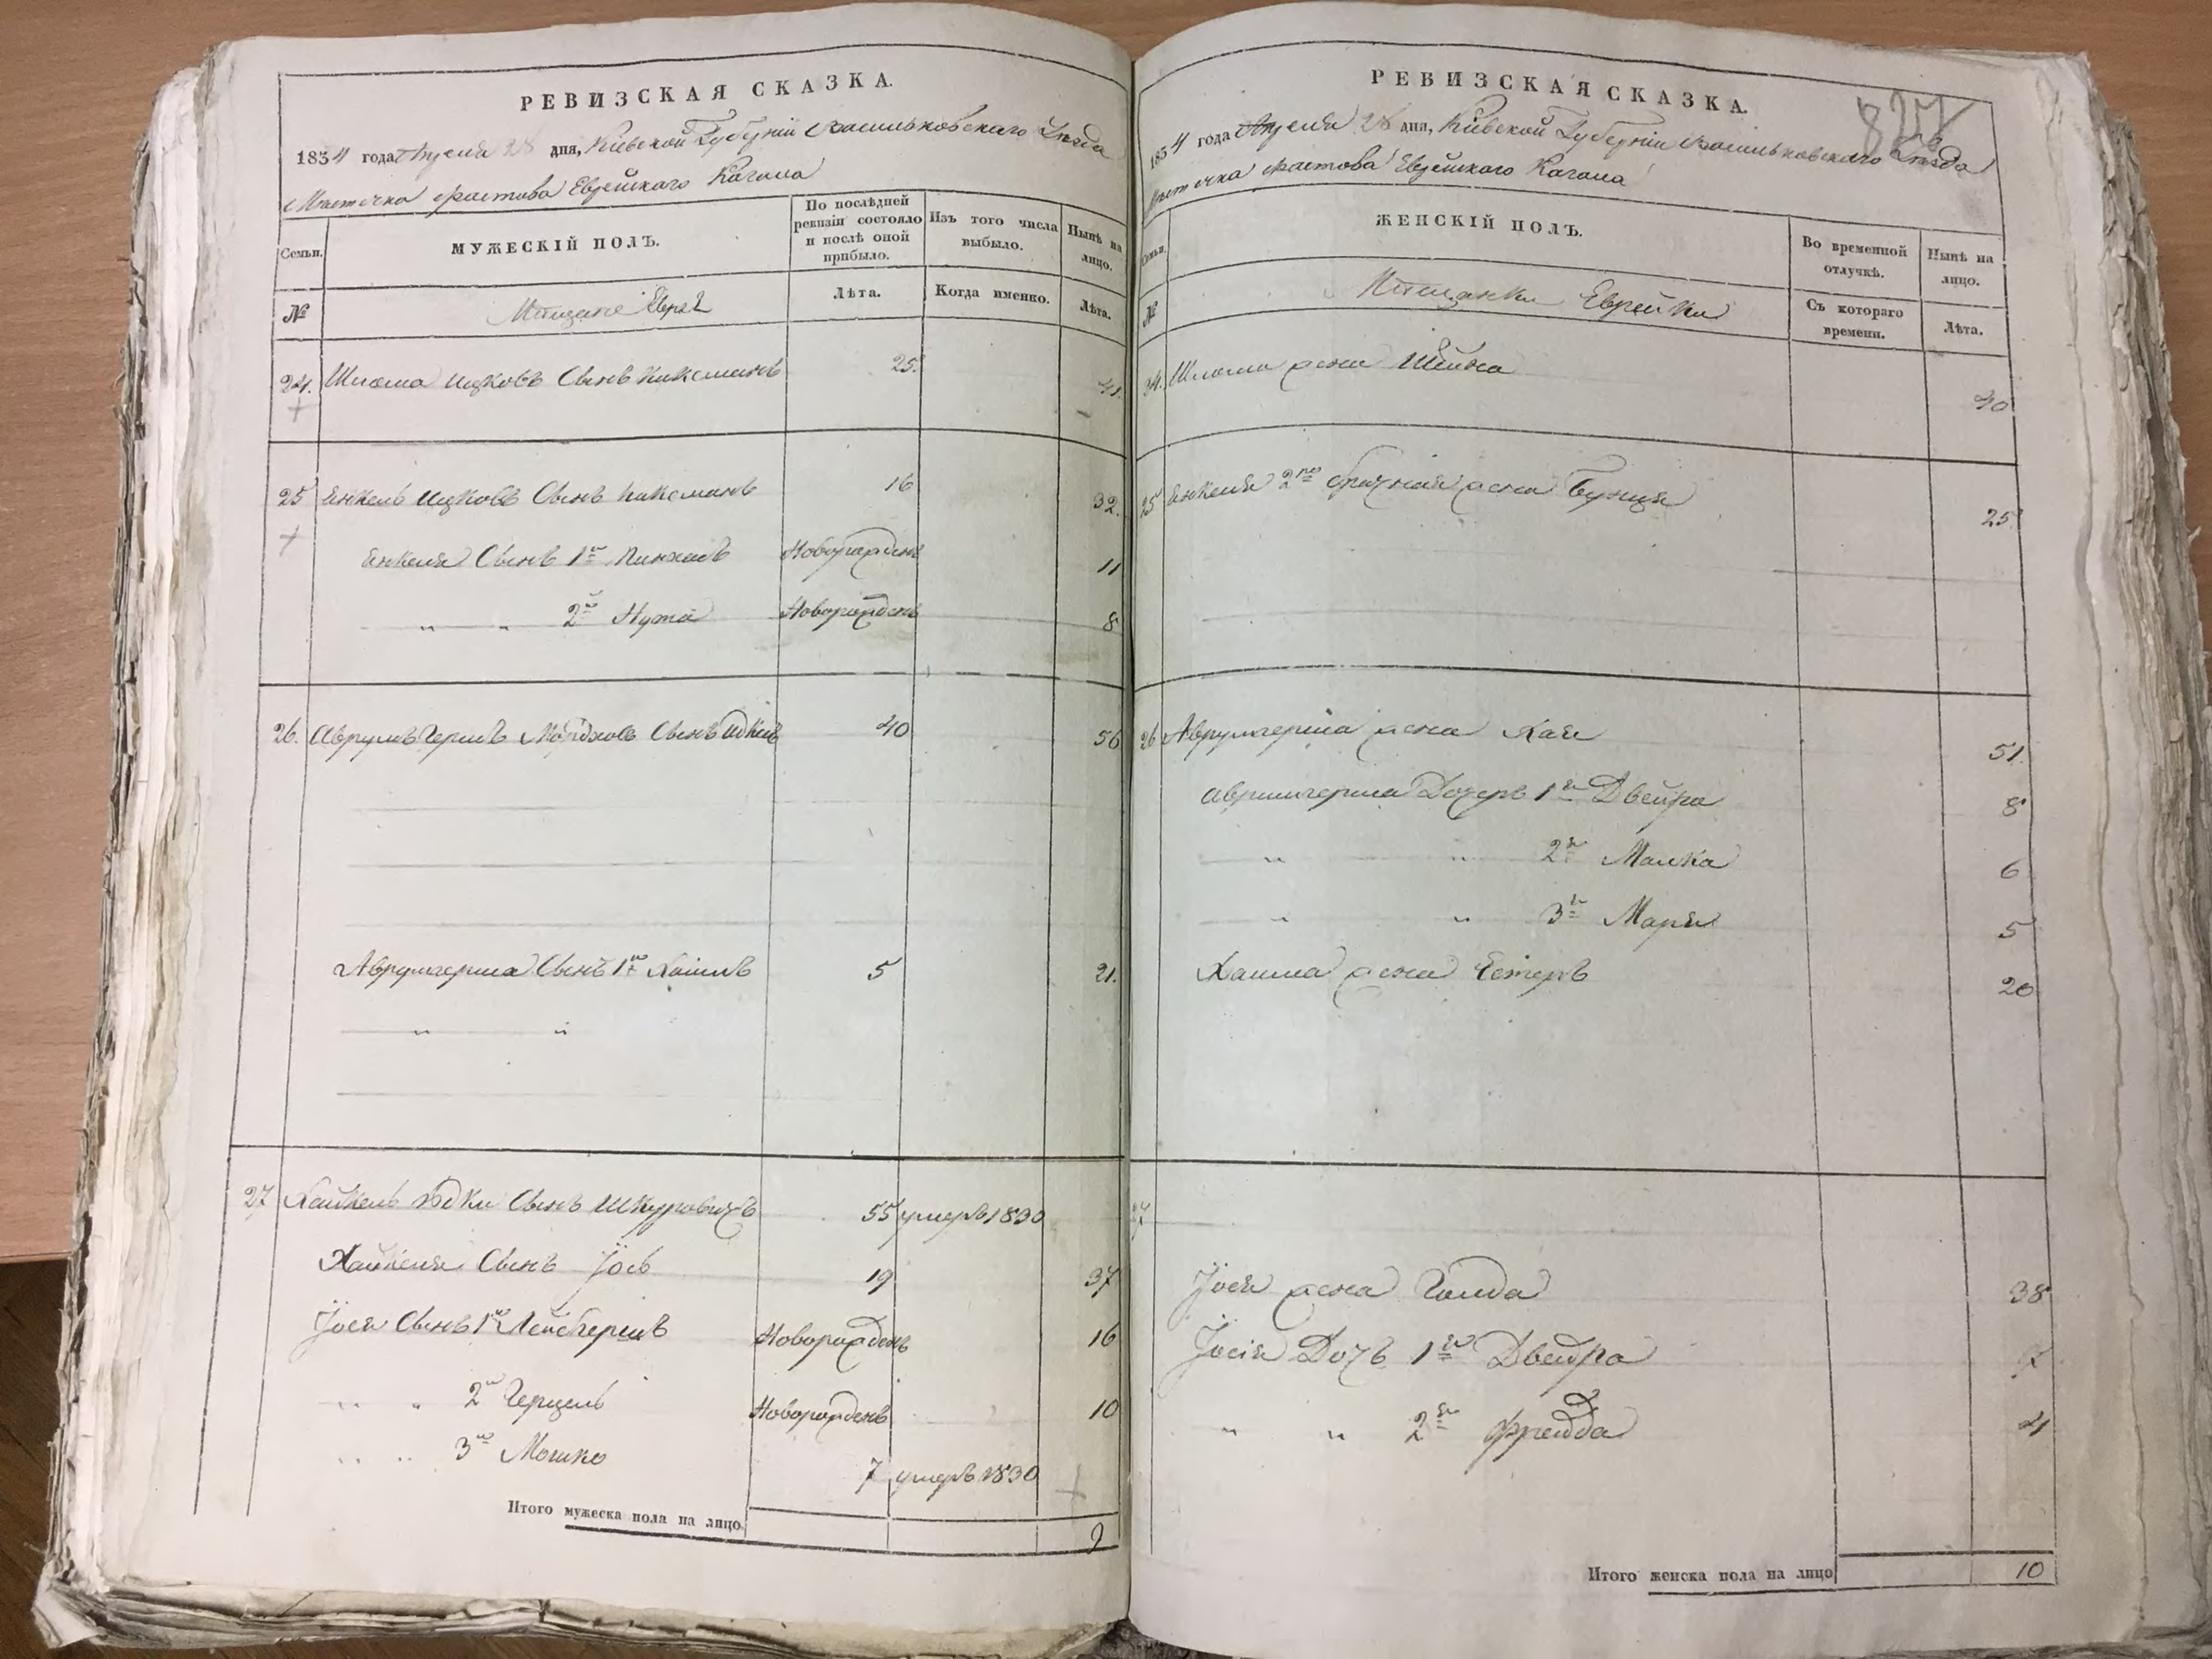 РЕВИЗСКАЯ СКАЗКА.
1854 года Апреля 28 дня, Кіевской Губерніи Васильковскаго Уезда
Мѣстечка Фастова Еврейскаго Кагала
Семьи.
МУЖЕСКІЙ ПОЛЪ.
По послѣдней ревизіи состояло и послѣ оной прибыло.
Изъ того числа выбыло.
Нынѣ на лицо.
№
Мѣщане Евреи
Лѣта.
Когда именно.
Лѣта.
24. Шлома Ицковъ Сынъ 25. 41.
25 Янкель Ицковъ Сынъ 16 32.
Янкеля Сынъ 1й Пинхасъ Новорожденъ 11
" " 2й Нута Новорожденъ 8
26. Аврумъ Гершъ Мордковъ Сынъ 40 56
Аврумгерша Сынъ 1й Хаимъ 5 21.
" "
27 Хайкель Юдки Сынъ Шкуровичъ 55 умеръ 1830
Хайкеля Сынъ Іось 19 37
Іося Сынъ 1й Лейбгершъ Новорожденъ 16
" " 2й Герцель Новорожденъ 10
" " 3й Мошко 7 умеръ 1830
Итого мужеска пола на лицо 9
РЕВИЗСКАЯ СКАЗКА.
827
1854 года Апреля 28 дня, Кіевской Губерніи Васильковскаго Уезда
Мѣстечка Фастова Еврейскаго Кагала
Семьи.
ЖЕНСКІЙ ПОЛЪ.
Во временной отлучкѣ.
Нынѣ на лицо.
№
Мѣщанки Еврейки
Съ котораго времени.
Лѣта.
24. Шлома жена Шейна 40
25 Янкеля 2го брачная жена Бунця 25
26 Аврумгерша жена Хая 51.
Аврумгерша Дочерь 1я Двейра 8
" " 2я Малка 6
" " 3я Марія 5
Хаима жена Естеръ 20
27
Іося жена Голда 38
Іосія Дочь 1я Двейра
" " 2я Фрейда 4
Итого женска пола на лицо 10